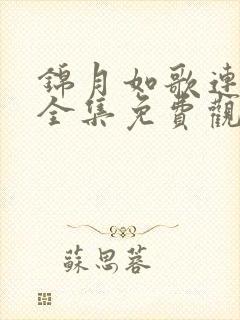 錦月如歌連
全集免費觀
蘇思蓉